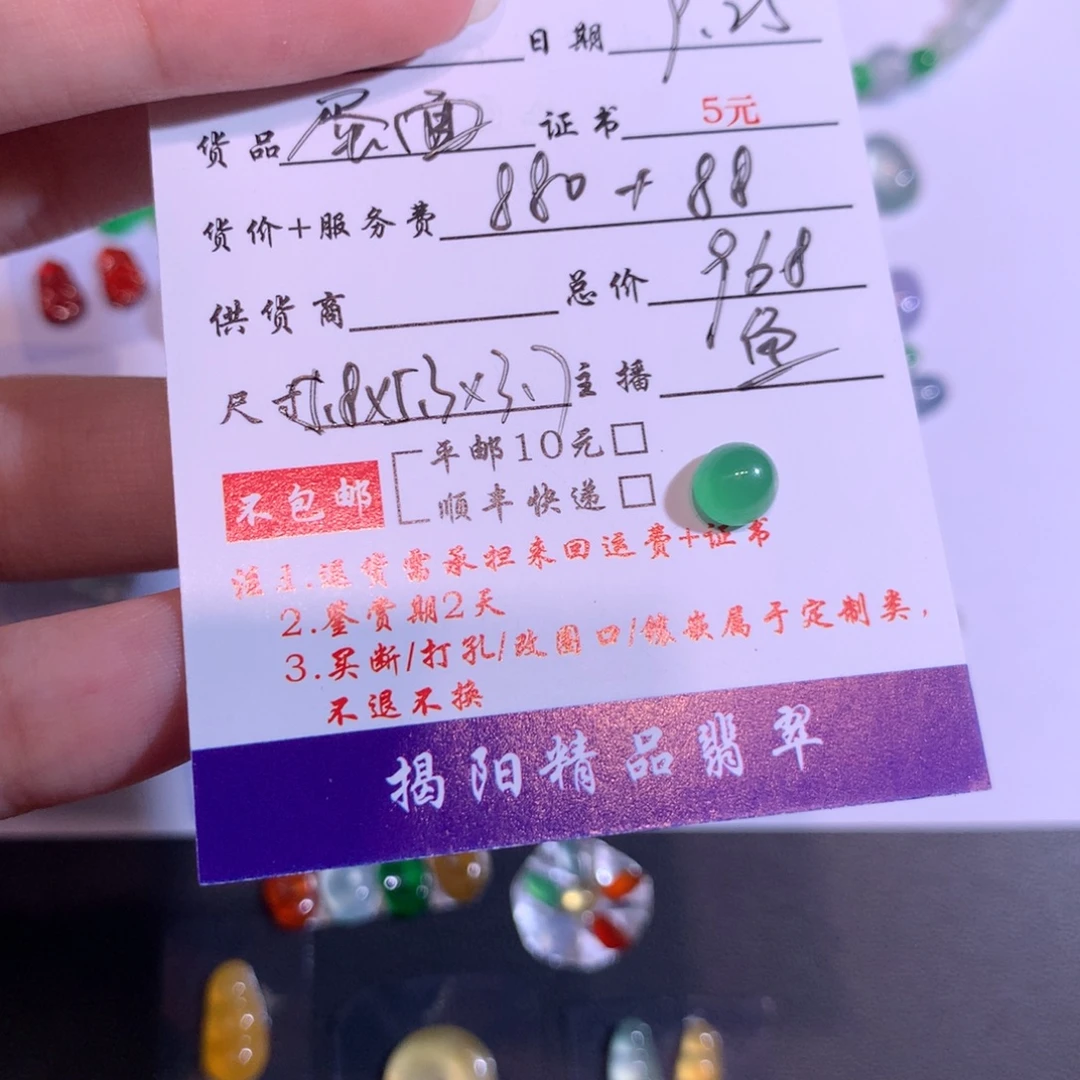 日期 9.25
货品 蛋面 证书 5元
货价+服务费 880 + 88
供货商 总价 968
尺寸 5.8x5.3x3. 主播 鱼
平邮10元
不包邮 顺丰快递
注1.退货需承担来回运费+证书
2.鉴赏期2天
3.买断/打孔/改圈口/镶嵌属于定制类,
不退不换
揭阳精品翡翠